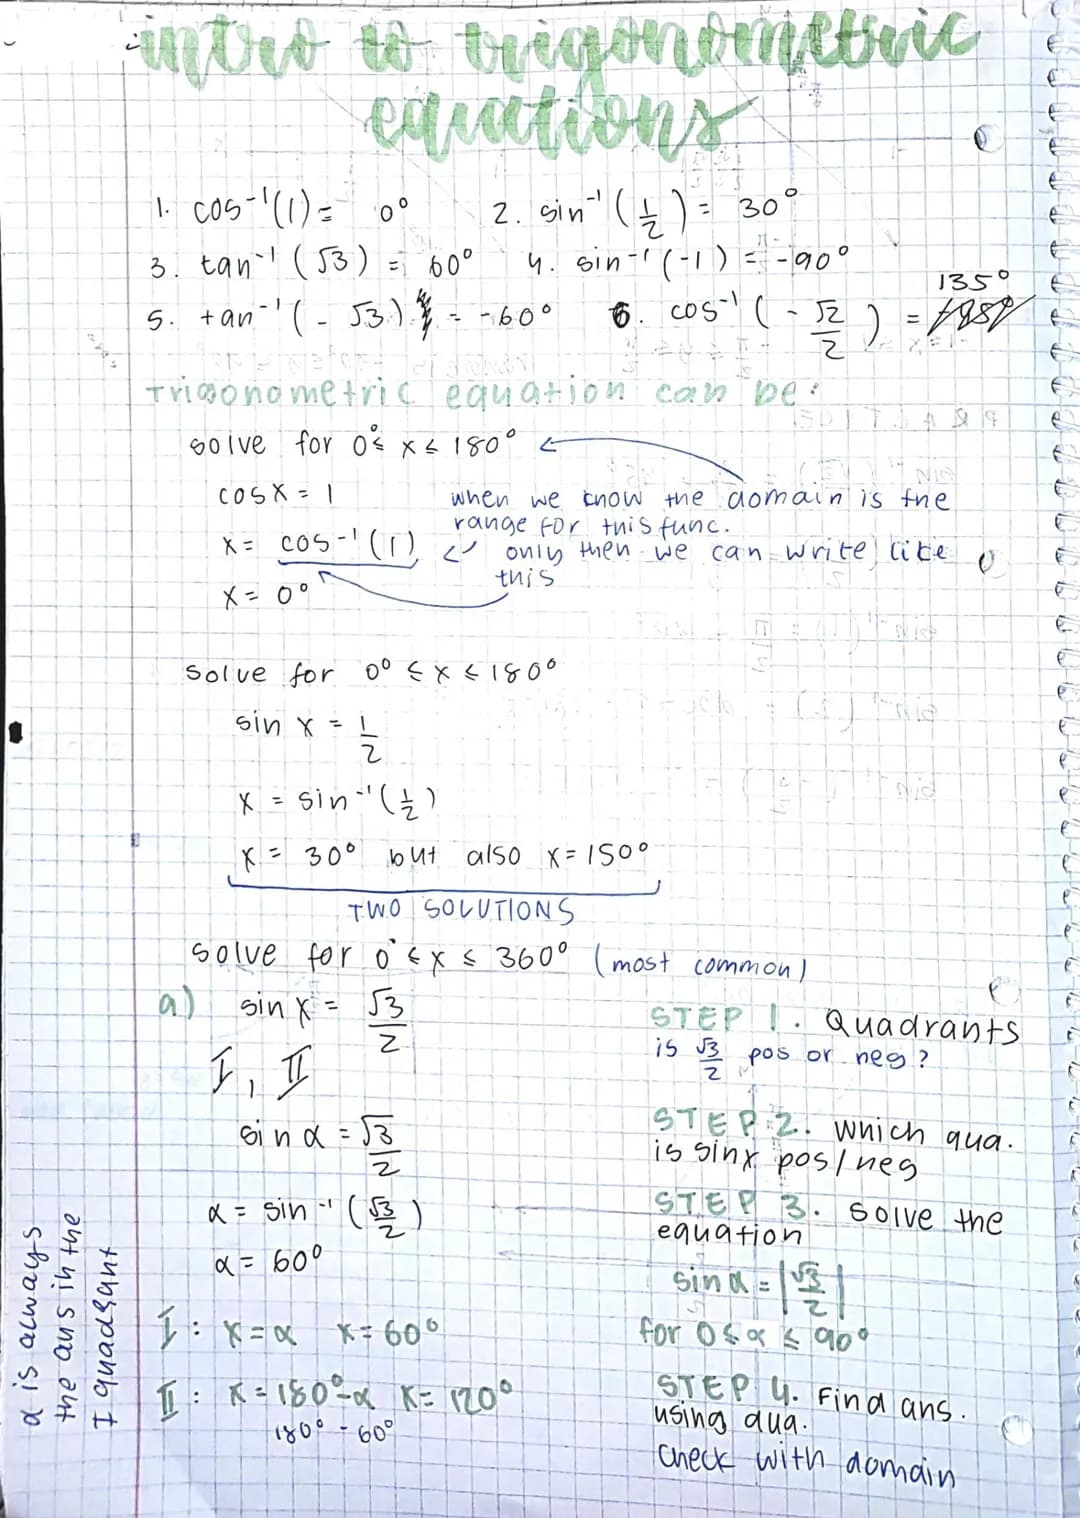 intro to trigonometric
equations
1. cos⁻¹(1) = 0°   2. sin⁻¹(1/2) = 30°
3. tan⁻¹(√3) = 60°   4. sin⁻¹(-1) = -90°
5. tan⁻¹(-√3) = -60°   6. cos⁻¹(-√2/2) = 135°
Trigonometric equation can be:
solve for 0° ≤ x ≤ 180°
cosx = 1
when we know the domain is the
range for this func.
x = cos⁻¹(1)
only then we can write like
this
x = 0°
solve for 0° ≤ x ≤ 180°
sin x = 1/2
x = sin⁻¹(1/2)
x = 30° but also x = 150°
TWO SOLUTIONS
solve for 0° ≤ x ≤ 360° (most common)
a) sin x = √3/2
I, II
sin α = √3/2
α = sin⁻¹(√3/2)
α = 60°
I: x = α   x = 60°
II: x = 180° - α   x = 120°
180° - 60°
STEP 1. Quadrants
is √3/2 pos or neg?
STEP 2. which qua.
is sinx pos/neg
STEP 3. solve the
equation
sin α = |√3/2|
for 0 ≤ α ≤ 90°
STEP 4. Find ans.
using qua.
Check with domain
α is always
the ans in the
I quadrant